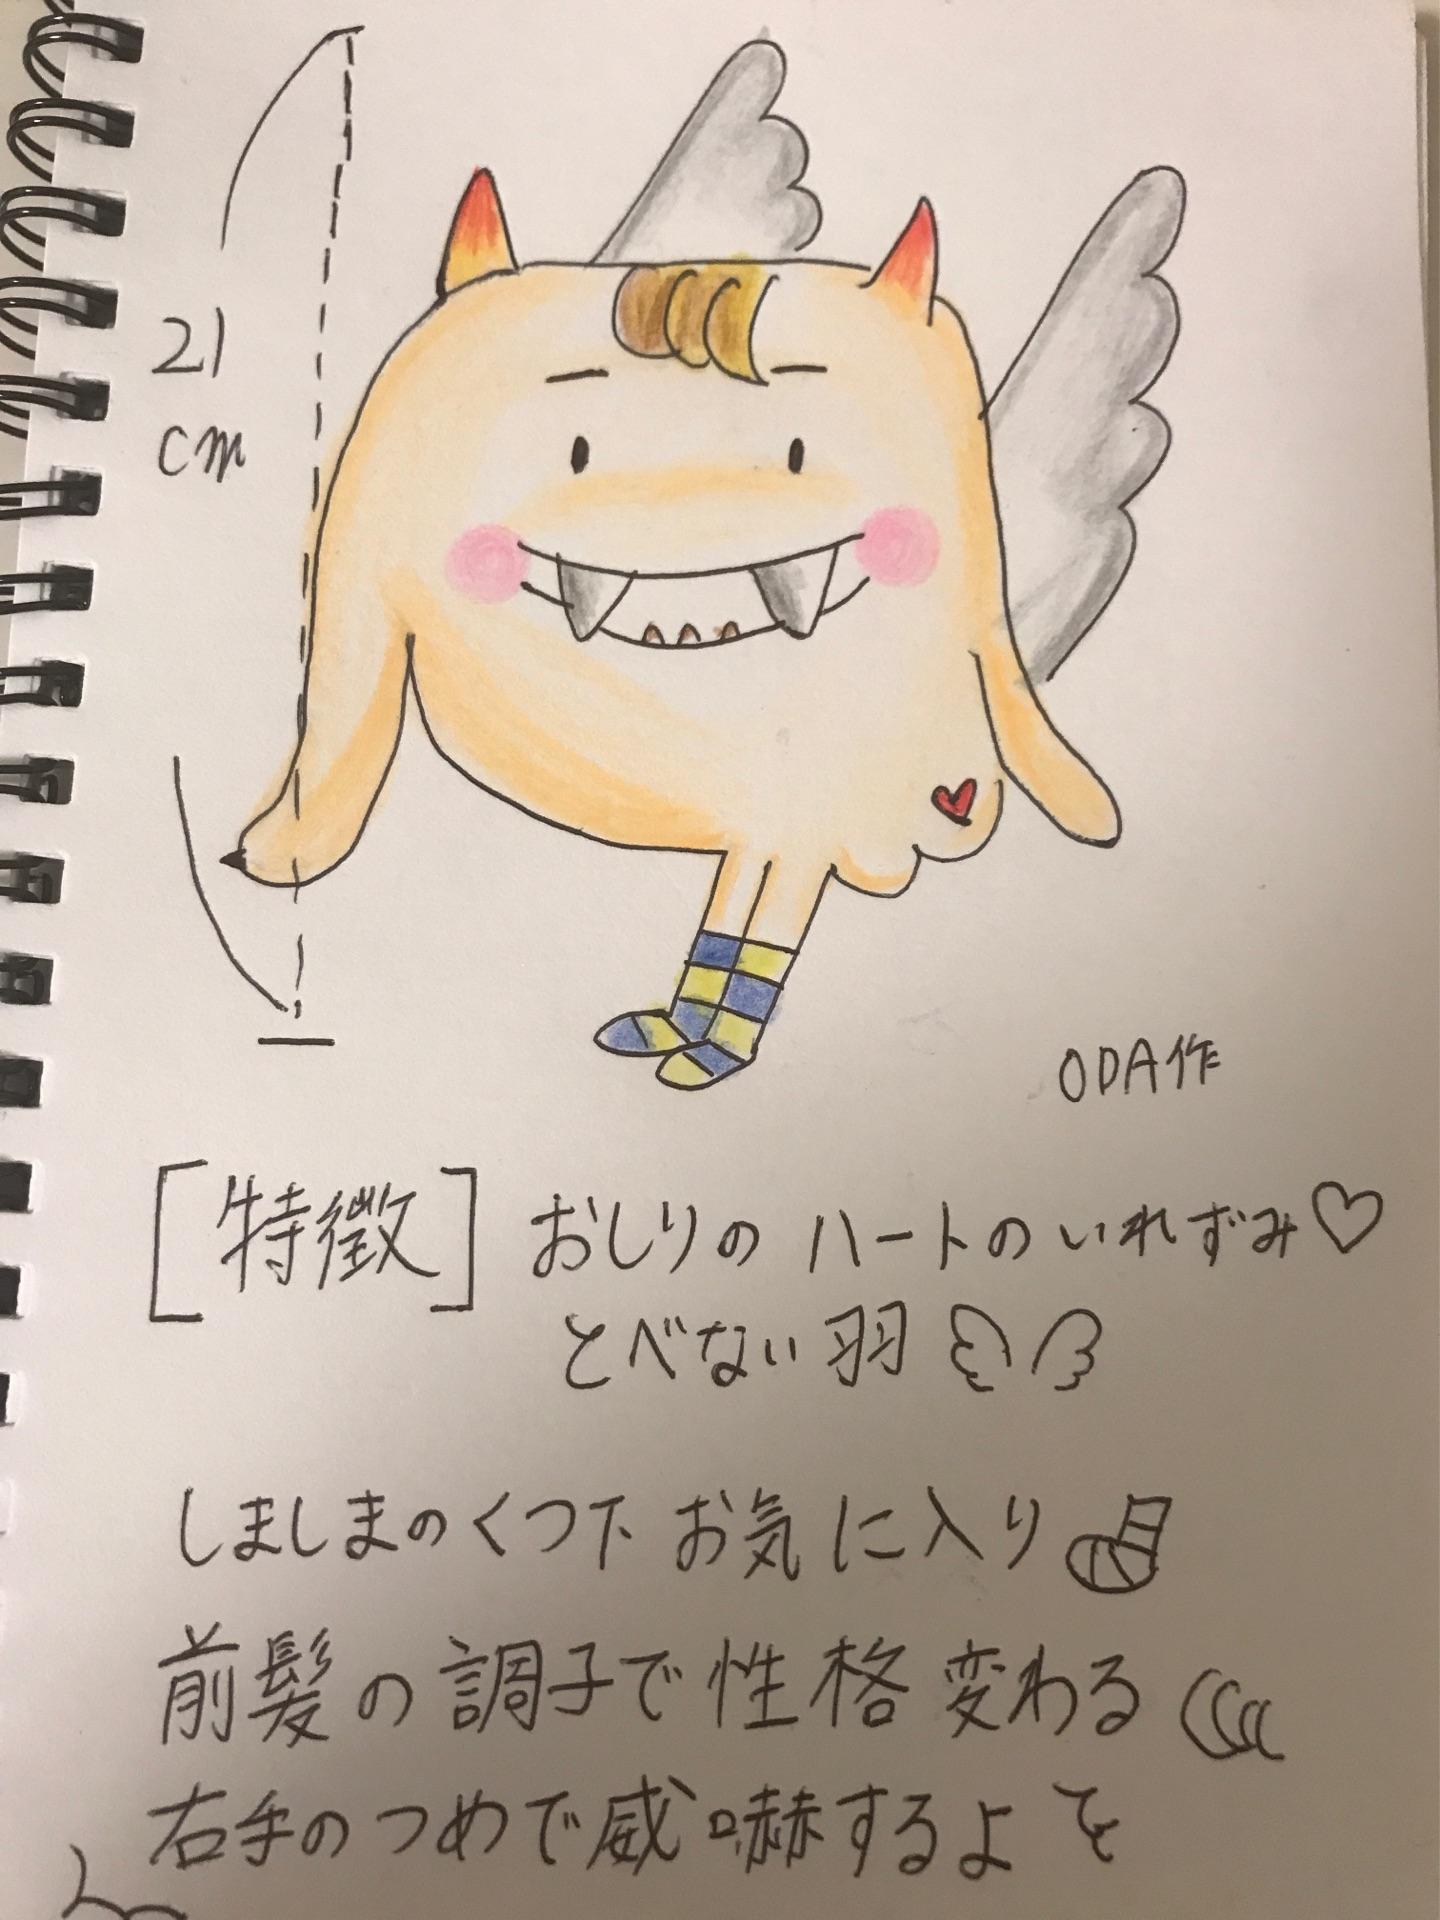 21
cm
ODA作
[特徴] おしりの ハートのいれずみ♡
とべない羽
しましまのくつ下 お気に入り
前髪の調子で性格変わる
右手のつめで威嚇するよ